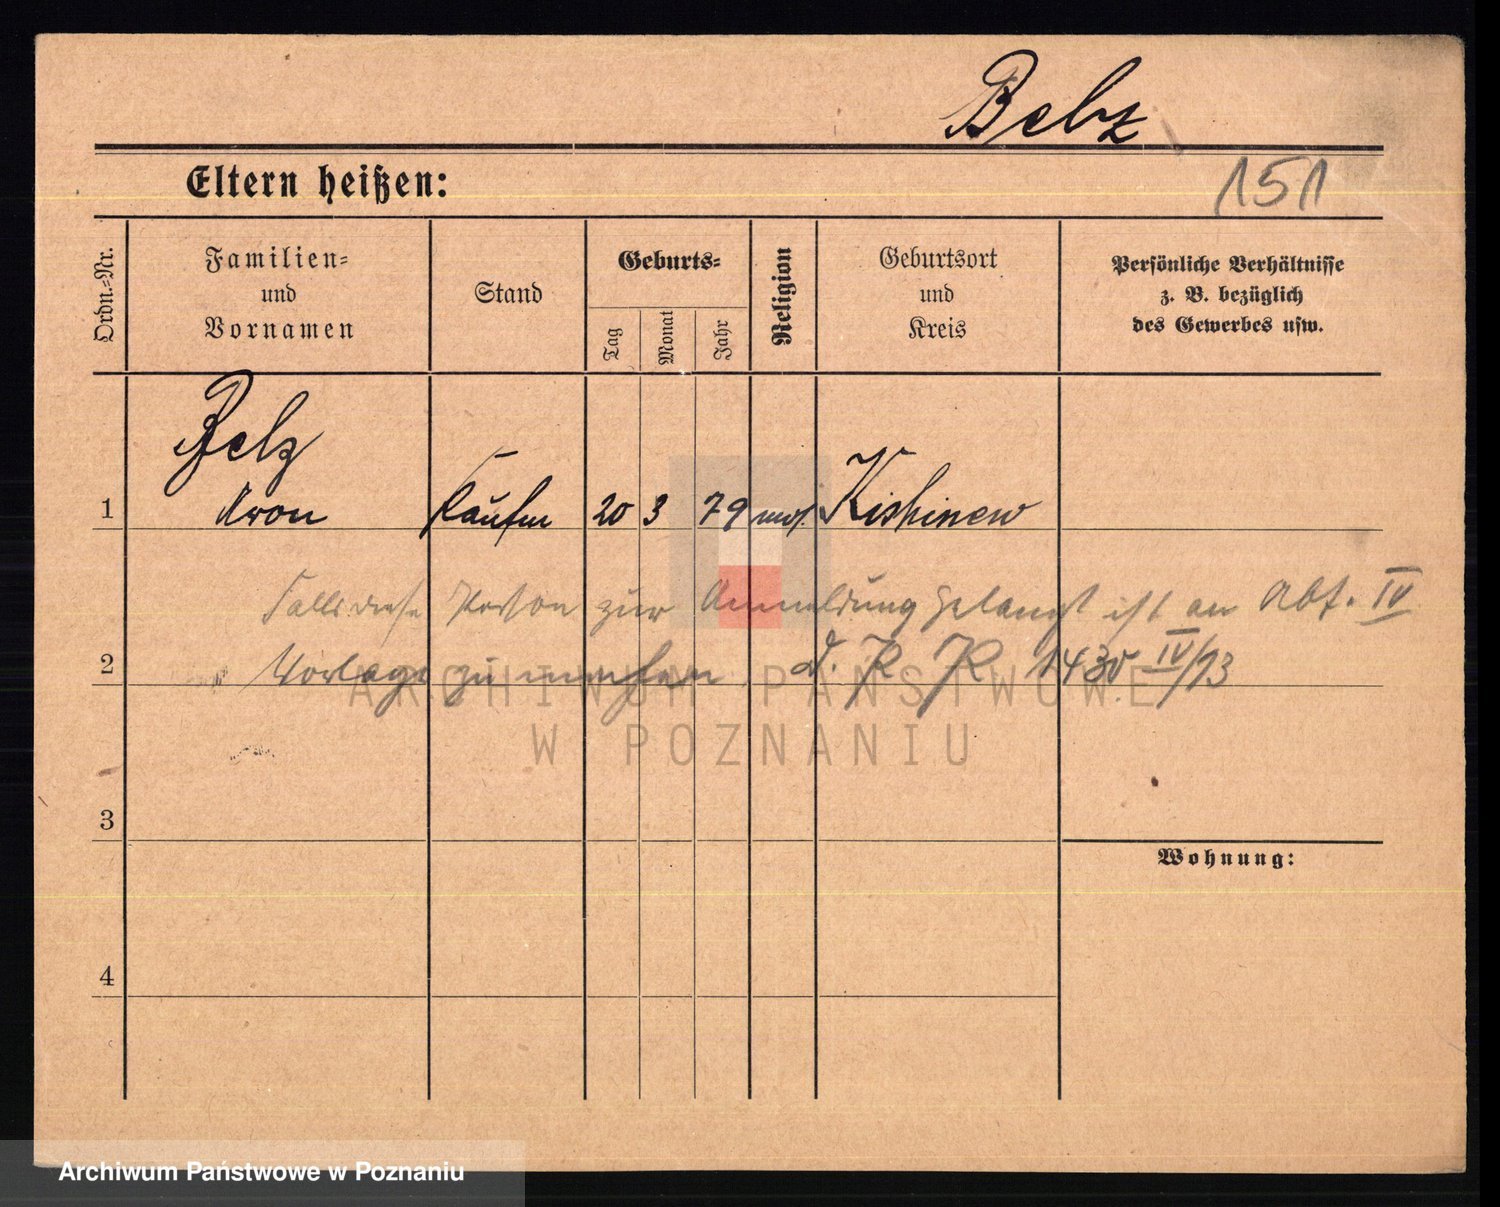 Belz
151
Eltern heißen:
Ordn.-Nr.
Familien-
und
Vornamen
Stand
Geburts-
Tag
Monat
Jahr
Religion
Geburtsort
und
Kreis
Persönliche Verhältnisse
z. B. bezüglich
des Gewerbes usw.
Belz
1 Aron Kaufm 20 3 79 mos. Kishinew
Falls diese Person zur Anmeldung gelangt ist an Abt. IV
2 Vorlage zu machen d. R R 1430 IV/13
3
Wohnung:
4
ARCHIWUM PAŃSTWOWE
W POZNANIU
Archiwum Państwowe w Poznaniu